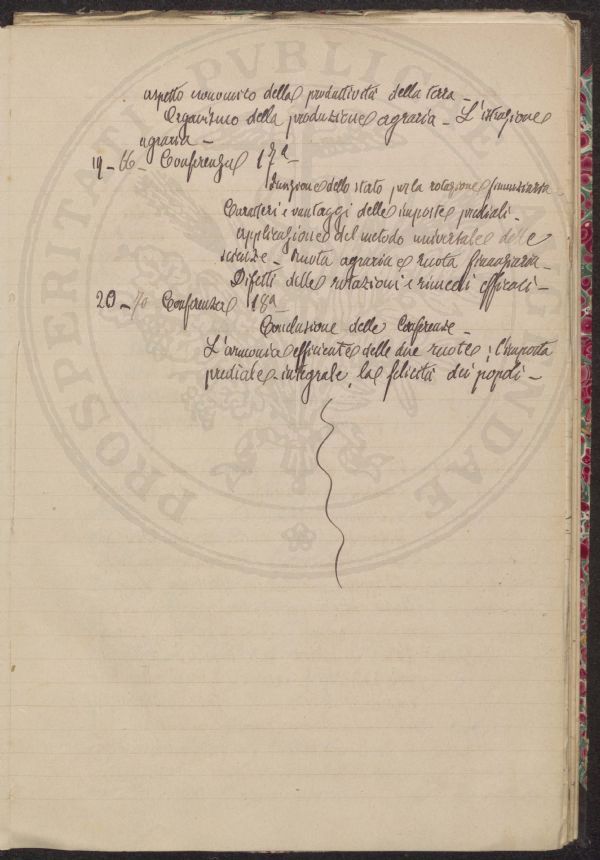 aspetto economico della produttività della terra –
Organismo della produzione agraria – L'istruzione
agraria –
19 – 66 – Conferenza 17ª –
Funzione dello stato per la rotazione finanziaria –
Caratteri e vantaggi delle imposte prediali –
Applicazione del metodo universale delle
scienze – ruota agraria e ruota finanziaria –
Difetti delle rotazioni e rimedi efficaci –
20 – 70 Conferenza 18ª –
Conclusione delle Conferenze –
L'armonia efficiente delle due ruote; l'imposta
prediale integrale, la felicità dei popoli –
PROSPERITATI PVBLICAE AVGENDAE